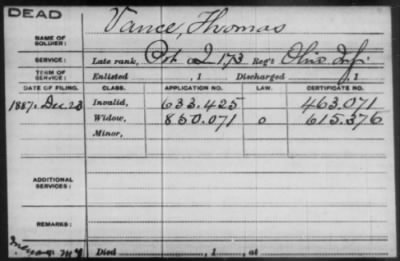 DEAD
NAME OF SOLDIER: Vance, Thomas
SERVICE: Late rank, Reg't Ohio Inf.
TERM OF SERVICE: Enlisted , 1 Discharged , 1
DATE OF FILING. CLASS. APPLICATION NO. LAW. CERTIFICATE NO.
1887. Dec. 23 Invalid, 633.425 463.071
Widow, 850.071 o 615.376
Minor,
ADDITIONAL SERVICES:
REMARKS:
Died , 1 , at